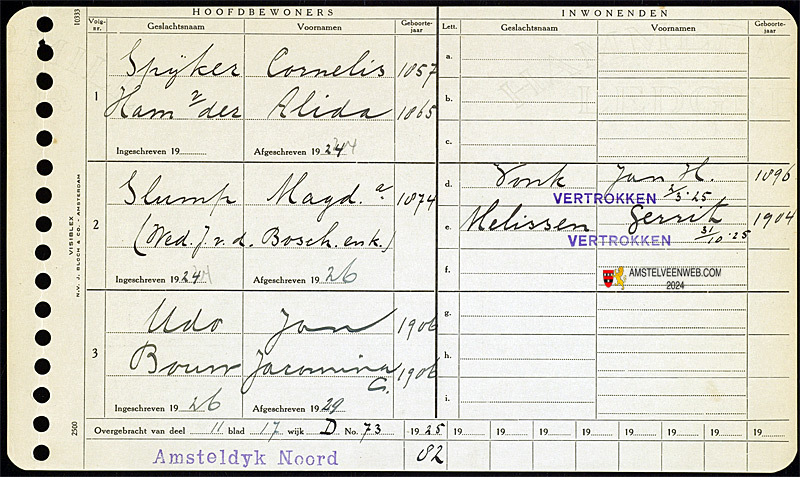 HOOFDBEWONERS
INWONENDEN
10333
Volg-nr.
Geslachtsnaam
Voornamen
Geboorte-jaar
Lett.
Geslachtsnaam
Voornamen
Geboorte-jaar
1
Spijker Cornelis 1857
Ham v der Alida 1865
Ingeschreven 19 Afgeschreven 1924
a.
b.
c.
2
Slump Magd.a 1874
(Wed. J. v. d. Bosch. enk.)
Ingeschreven 1924 Afgeschreven 19 26
d. Vonk Jan H. 1896
VERTROKKEN 2/3-25
e. Melissen Gerrit 1904
VERTROKKEN 31/10-25
f.
AMSTELVEENWEB.COM
2024
3
Udo Jan 1906
Bouw Jacomina C. 1906
Ingeschreven 19 26 Afgeschreven 19 29
g.
h.
i.
Overgebracht van deel 11 blad 17 wijk D No. 73 -1925 19 19 19 19 19 19 19 19
Amsteldyk Noord 82
VISIBLEX
N.V. J. BLOCH & CO. - AMSTERDAM
2500